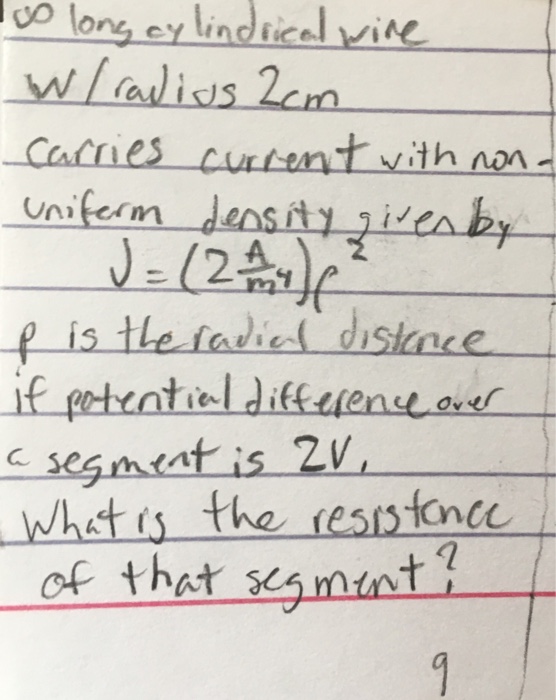 ∞ long cylindrical wire
w/ radius 2cm
carries current with non-
uniform density given by
J = (2 A/m⁴)ρ²
ρ is the radial distance
if potential difference over
a segment is 2V,
What is the resistance
of that segment?
9